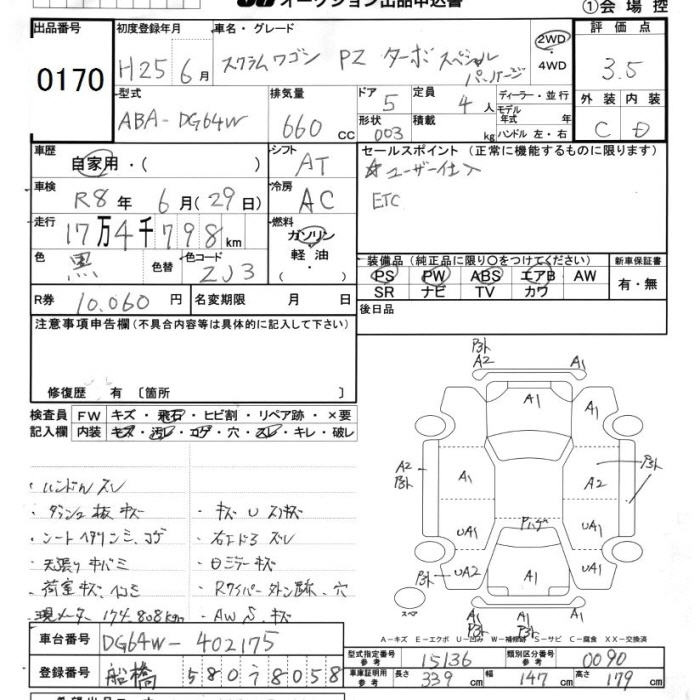 オークション出品申込書
①会場控
出品番号 0170
初度登録年月 H25年6月
車名・グレード スクラムワゴン PZ ターボ スペシャルパッケージ
2WD・4WD
評価点 3.5
外装 C 内装 D
型式 ABA-DG64W
排気量 660 cc
ドア 5 形状 003
定員 4人 積載 kg
ディーラー・並行
モデル年式 年
ハンドル 左・右
車歴 自家用・( )
シフト AT
セールスポイント (正常に機能するものに限ります)
☆ユーザー仕入
ETC
車検 R8年 6月(29日)
冷房 AC
走行 17万4千798km
燃料 ガソリン・軽油・( )
色 黒 色替 色コード ZJ3
装備品 (純正品に限り○をつけてください)
PS PW ABS エアB AW
SR ナビ TV カワ
新車保証書 有・無
R券 10,060円 名変期限 月 日
後日品
注意事項申告欄(不具合内容等は具体的に記入して下さい)
修復歴 有 〔箇所 〕
検査員記入欄
FW キズ・飛石・ヒビ割・リペア跡・×要
内装 キズ・汚レ・コゲ・穴・スレ・キレ・破レ
・ハンドルスレ
・ダッシュ板キズ
・シートヘタリシミ、コゲ
・天張りキバミ
・荷室キズ、ヘコミ
・現メーター 174,808km
・キズ U スリキズ
・右エドラ ズレ
・日ミラーキズ
・Rワイパー外シ跡、穴
・AW S、キズ
P3ト
A2 A1
A1 A1
A2 P3ト A1 A1 P3ト
UA1 Pハゲ UA1
P3ト UA2 A1 A1
P3ト A1
スペア
A−キズ E−エクボ U−凹み W−補修跡 S−サビ C−腐食 XX−交換済
車台番号 DG64W-402175
登録番号 船橋 580 る 8058
型式指定番号 参考 15136 類別区分番号 参考 0090
車庫証明用 参考 長さ 339cm 幅 147cm 高さ 179cm